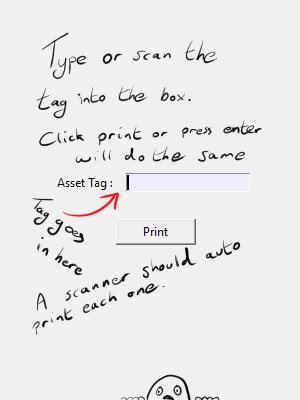 Type or scan the
tag into the box.
Click print or press enter
will do the same
Asset Tag:
Tag goes
in here
Print
A scanner should auto
print each one.